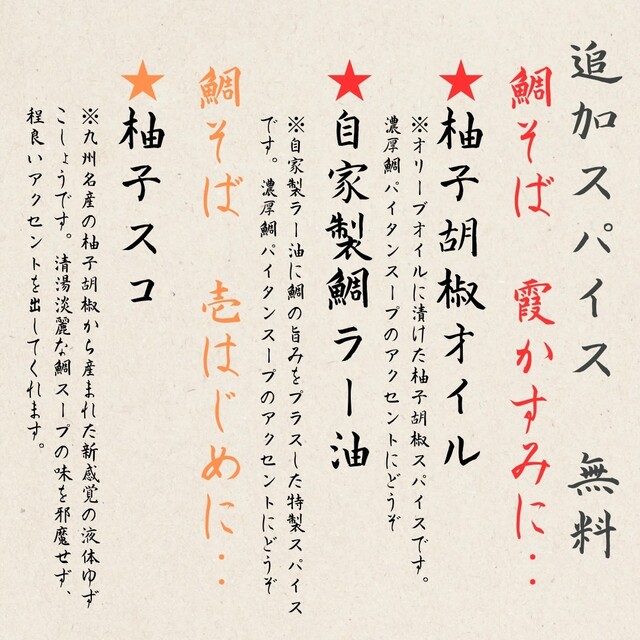 追加スパイス 無料
鯛そば 霞かすみに‥
★柚子胡椒オイル
※オリーブオイルに漬けた柚子胡椒スパイスです。
濃厚鯛パイタンスープのアクセントにどうぞ
★自家製鯛ラー油
※自家製ラー油に鯛の旨みをプラスした特製スパイス
です。濃厚鯛パイタンスープのアクセントにどうぞ
鯛そば 壱はじめに‥
★柚子スコ
※九州名産の柚子胡椒から産まれた新感覚の液体ゆず
こしょうです。清湯淡麗な鯛スープの味を邪魔せず、
程良いアクセントを出してくれます。